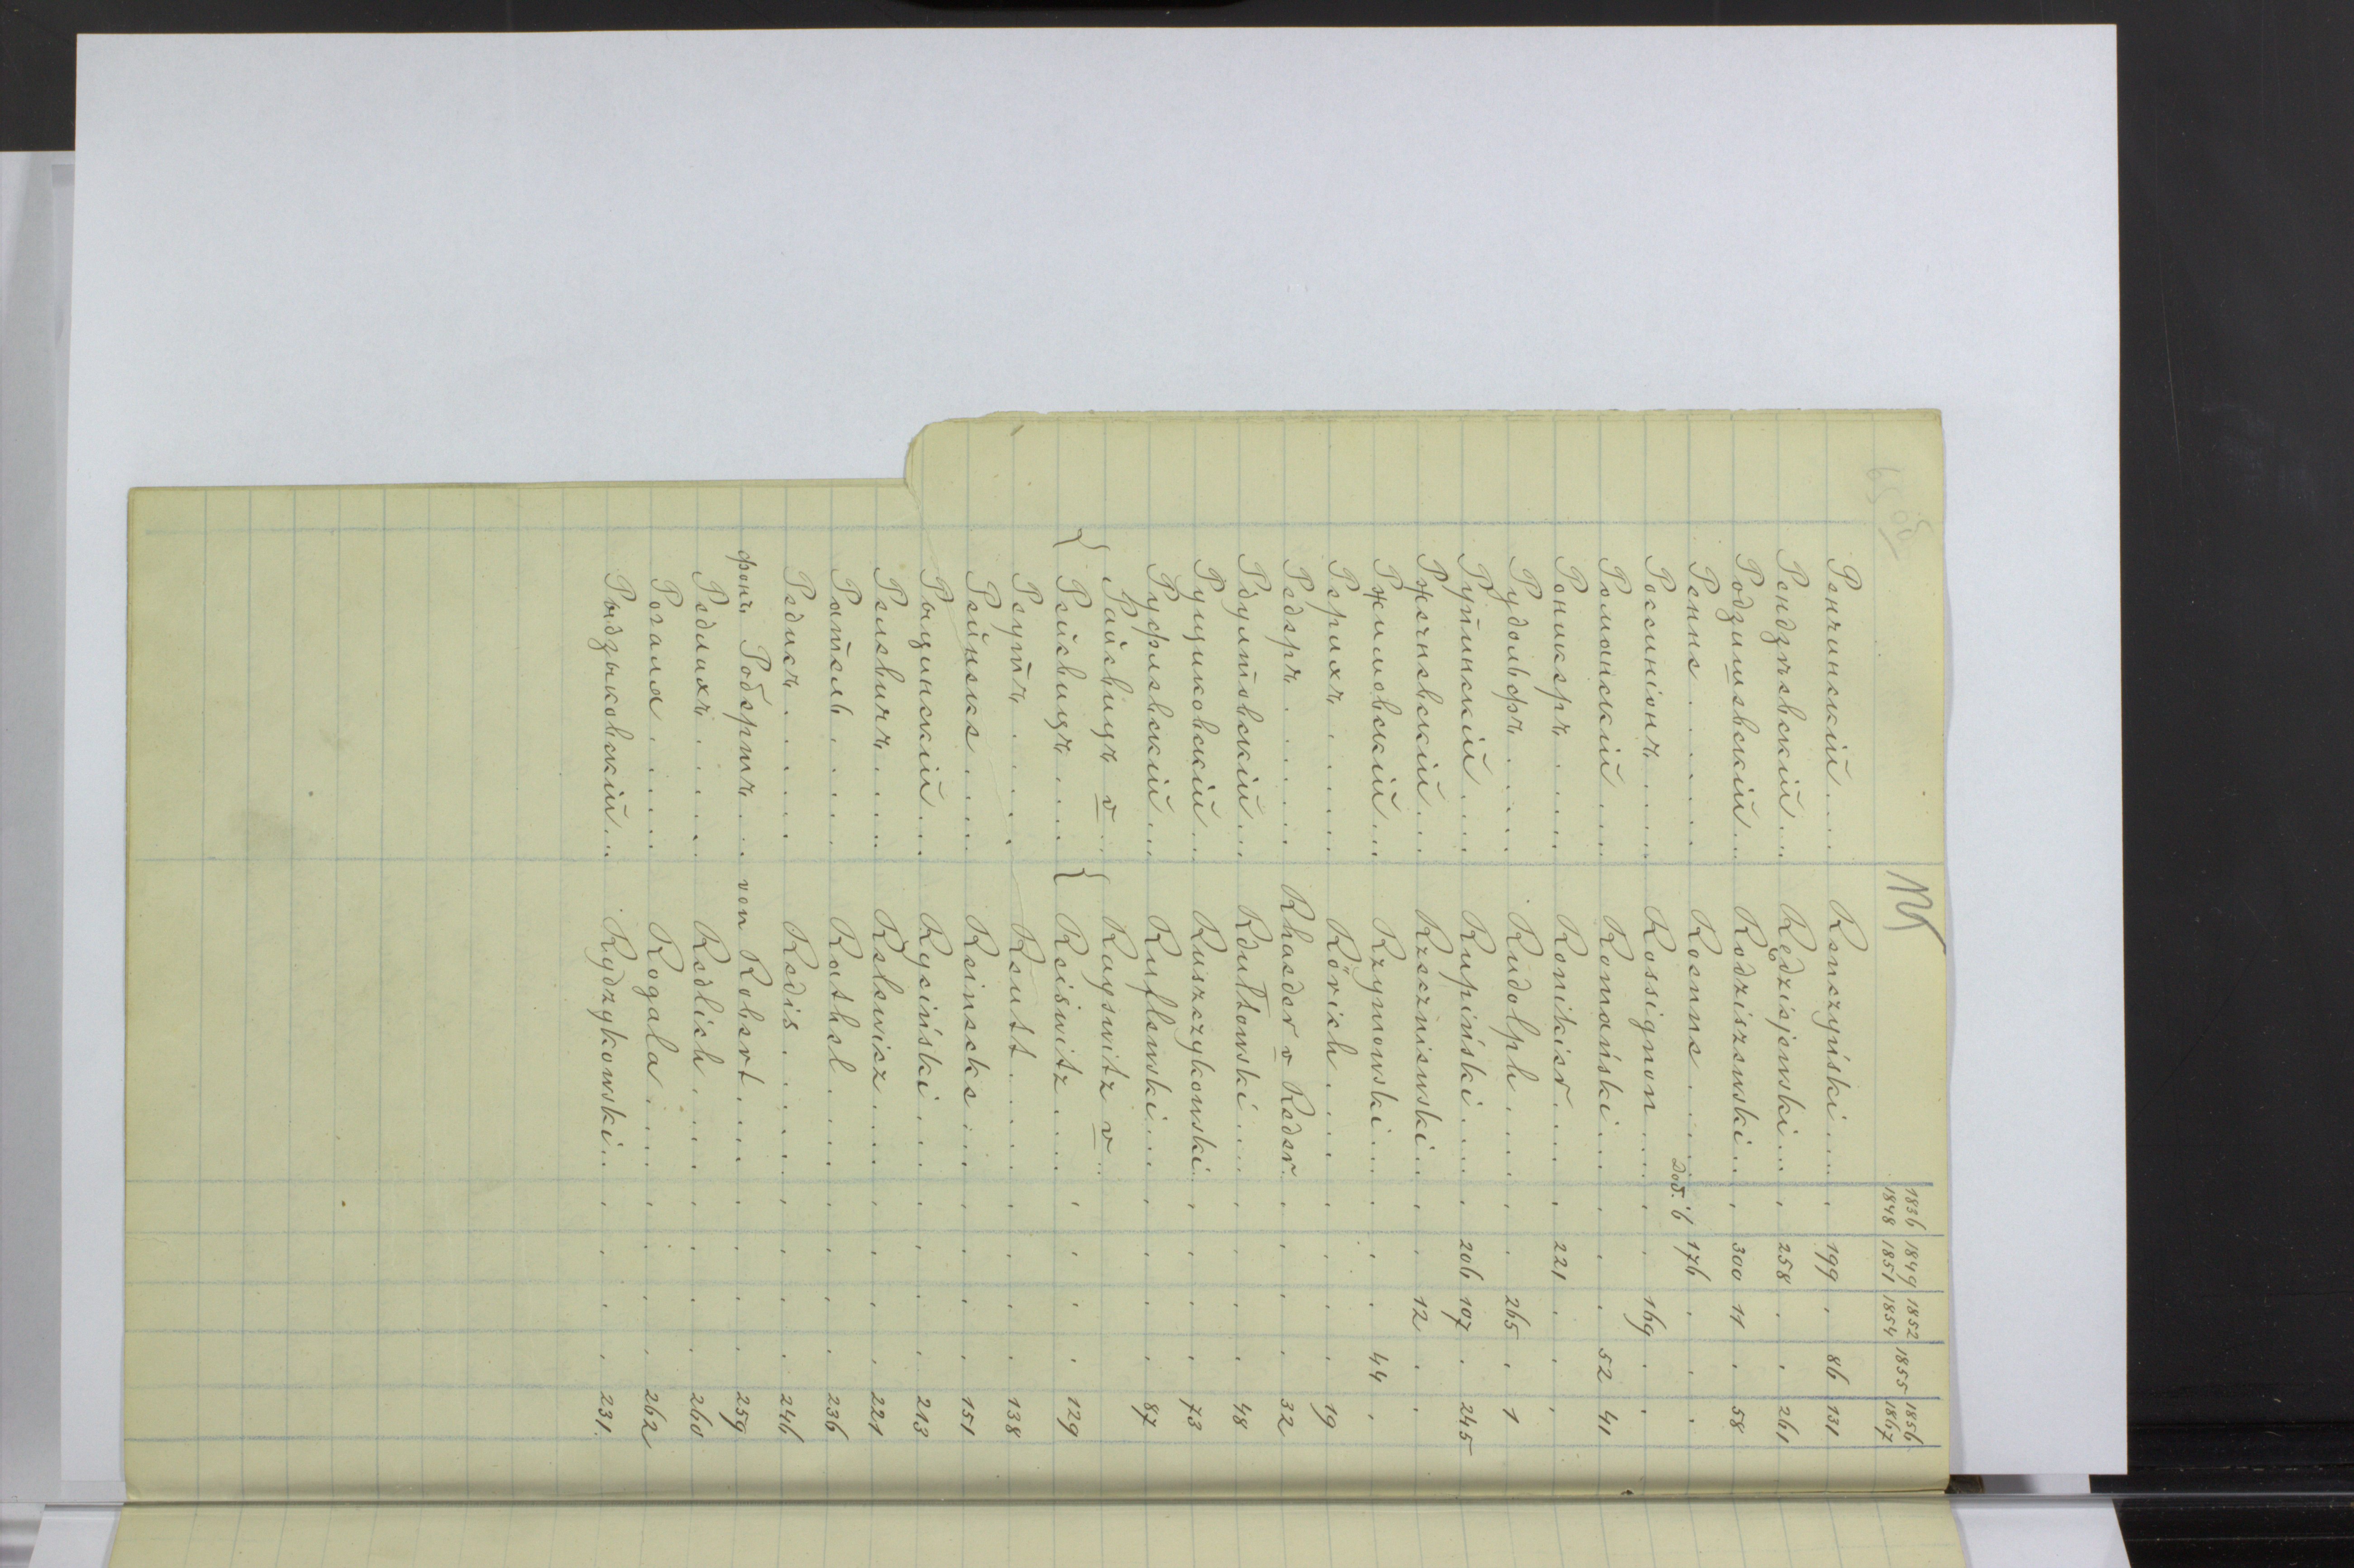 1836 1849 1852 1855 1856
1848 1851 1854 1867
Ренчинскій . . . Renczyński . . . . 199 . 86 131
Рендзеевскій . . . Rędziejewski . . . 258 . . 261
Родзишевскій . . . Rodziszewski . . . 300 11 . 58
Ренне . . . . . Roenne . . . . доб. 16 176 . . .
Россиніонъ . . . . Rossignon . . . . . 169 . .
Романскій . . . Romański . . . . . . 52 41
Роникеръ . . . . Ronikier . . . . 221 . . .
Рудольфъ . . . . Rudolph . . . . . 265 . 1
Рупинскій . . . Rupiński . . . . 206 107 . 245
Ржечневскій . . . Rzeczniewski . . . . 12 . .
Ржимовскій . . . Rzymowski . . . . . . 44 .
Рерихъ . . . . . Rörich . . . . . . . 19
Редеръ . . . . . Rhaeder v Reder . . . . . 32
Рдултовскій . . . Rdułtowski . . . . . . 48
Рущиковскій . . . Ruszczykowski . . . . . 73
Руфлевскій . . . Ruflewski . . . . . . . 87
{ Райсвицъ v . . . { Rayswitz v . .
{ Рейсвицъ . . . . { Reiswitz . . . . . . . 129
Реутъ . . . . Reutt . . . . . . . 138
Рейнеке . . . . Reinecke . . . . . . 151
Рыцинскій . . . Ryciński . . . . . . . 213
Релевичъ . . . . Relewicz . . . . . . . 221
Ратель . . . . Rathel . . . . . . . 236
Редисъ . . . . . Redis . . . . . . . 246
фонъ Робертъ . . . von Robert . . . . . . 259
Редлихъ . . . . . Redlich . . . . . . . 260
Рогала . . . . . Rogala . . . . . . . 262
Рыдзыковскій . . . Rydzykowski . . . . . . 231